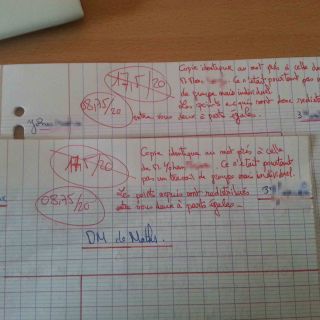 Copie identique au mot près à celle de
M Ce n'était pourtant pas un
17,5/20
de groupe mais individuel.
Les points acquis sont donc redistri
08,75/20
entre vous deux à parts égales.
Copie identique au mot près à celle
17,5/20
de M Yohan Ce n'était pourtant
pas un travail de groupe mais individuel.
Les points acquis sont redistribués
08,75/20
entre vous deux à parts égales.
DM de Maths.